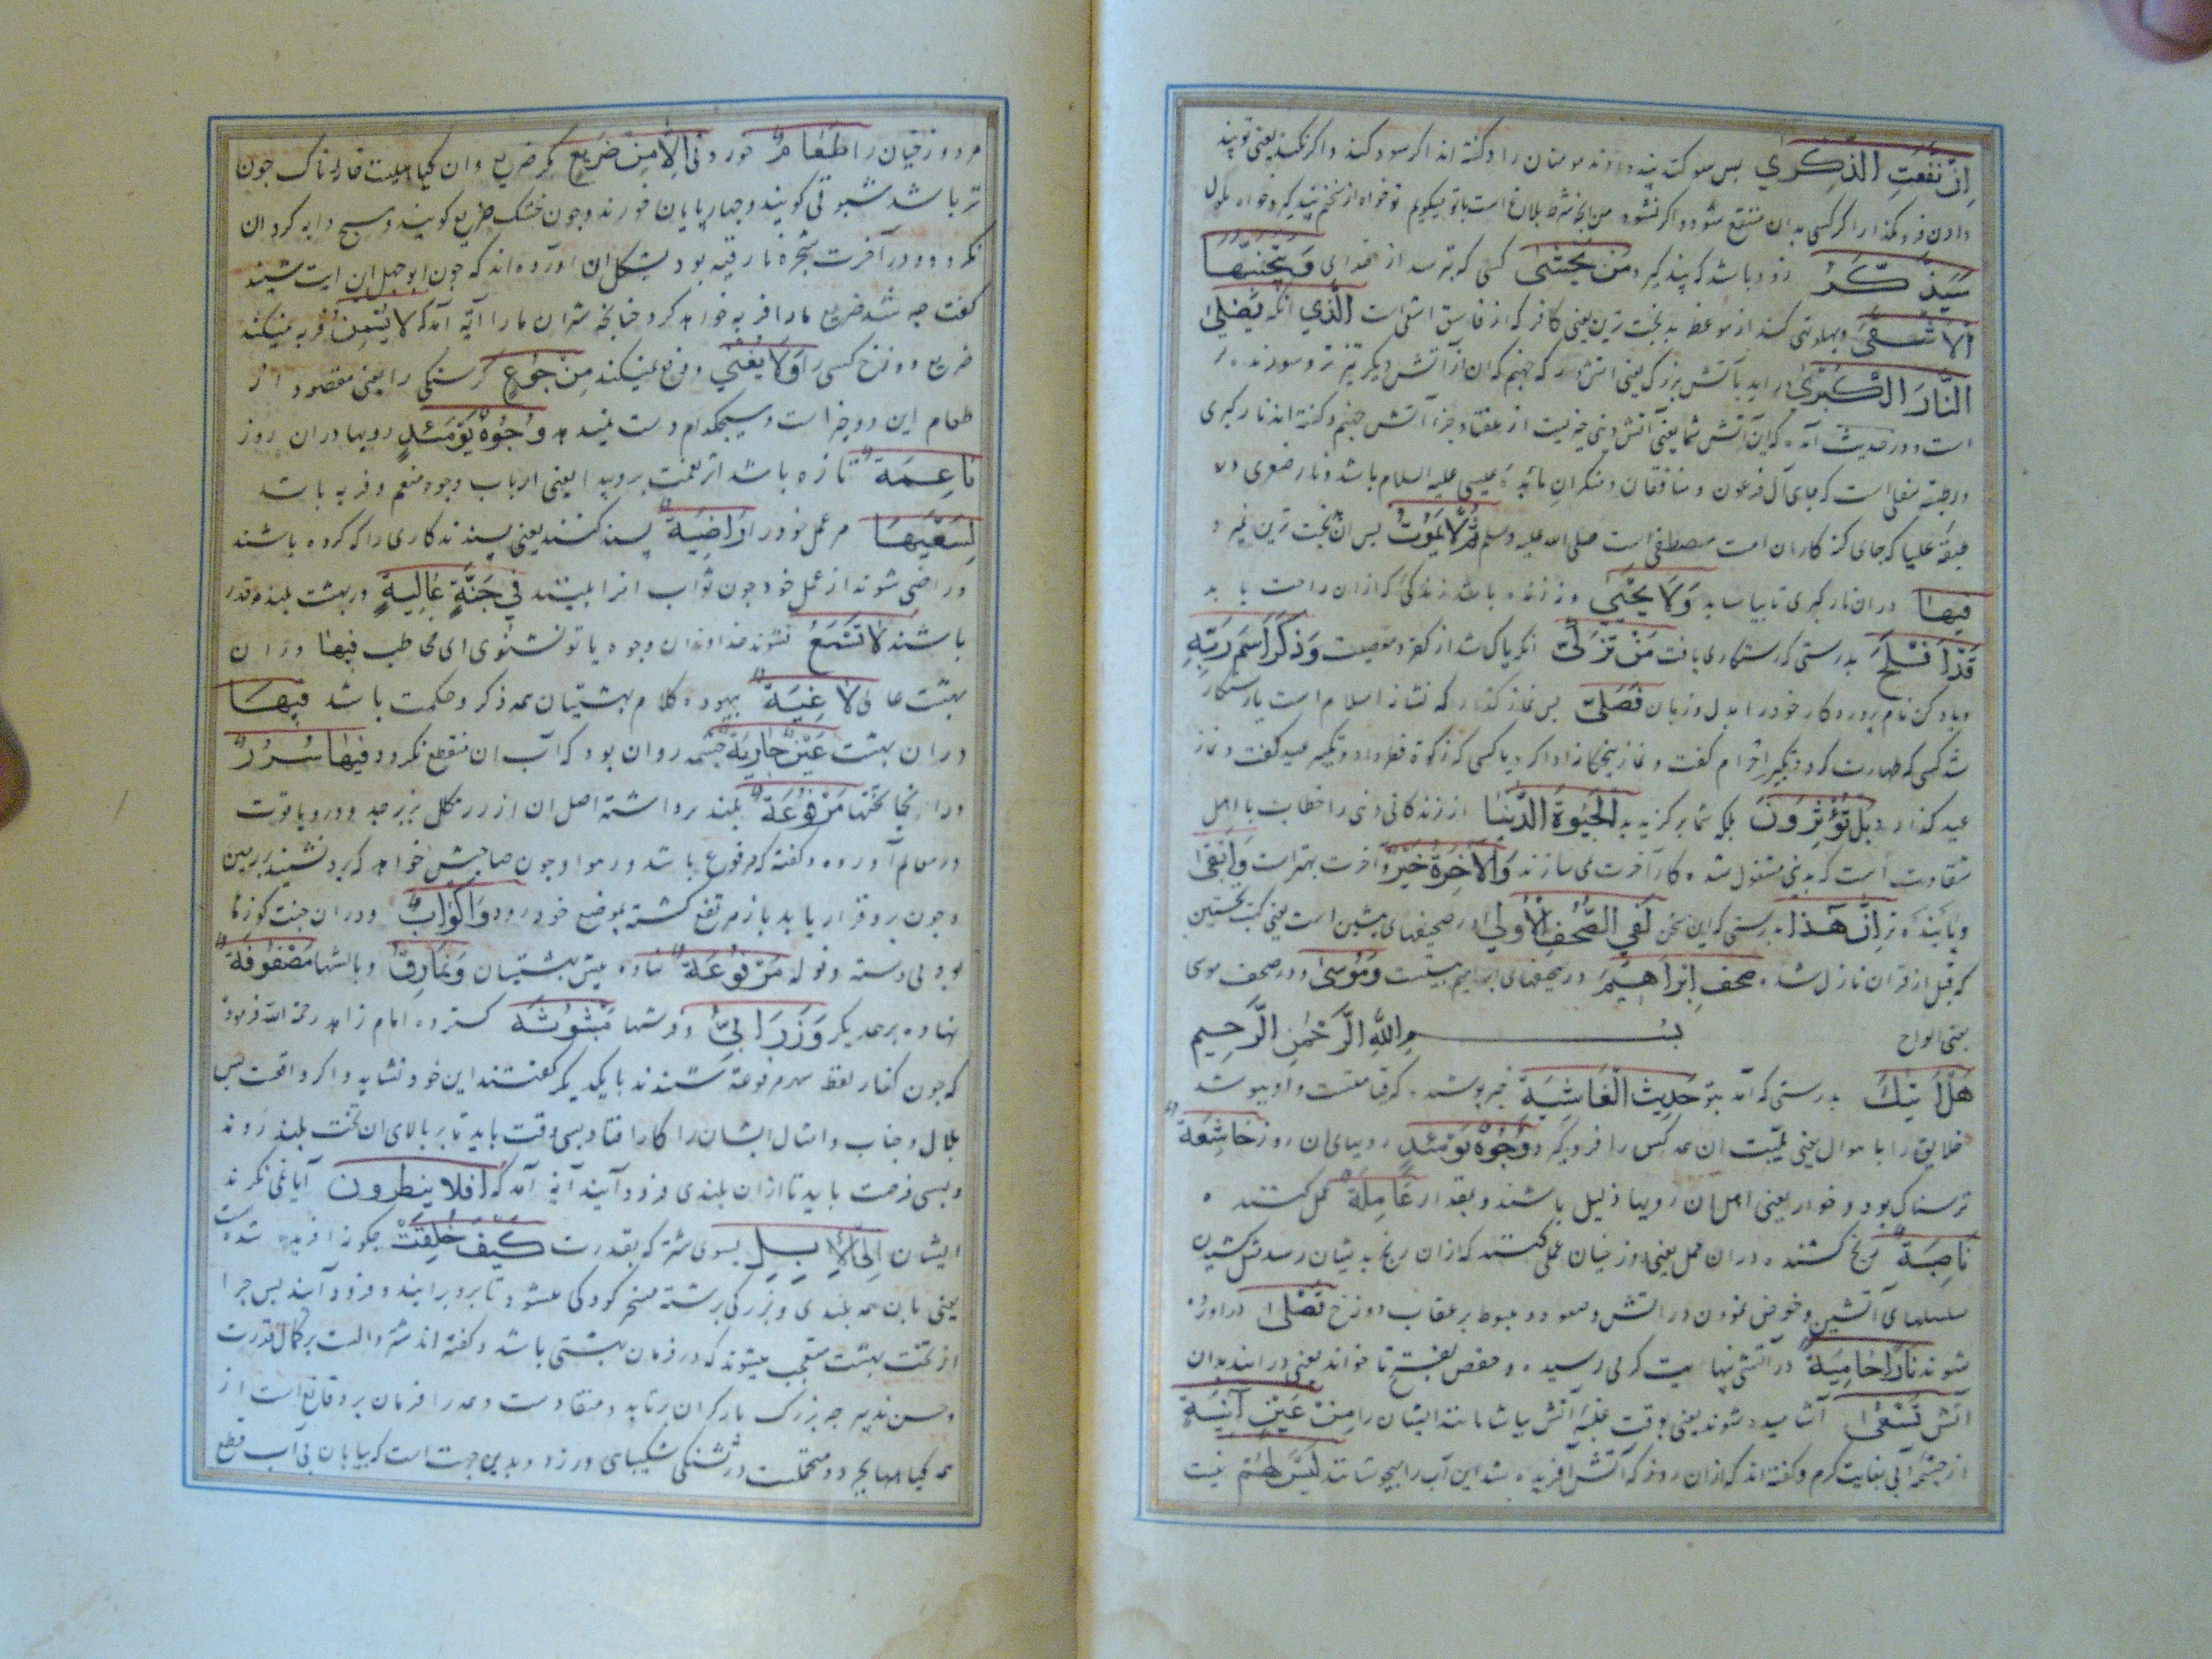 اِنْ نَفَعَتِ الذِّكْرٰي بس سوكند پند دادند مومنان را و كفته اند اكر سود كند و اكر نكند يعنى تو پند
دادن فرو مكذار اكر كسى بدان منتفع شود و اكر نشود من انچه شرط بلاغ است با تو ميكويم تو خواه از سخنم پند كير و خواه ملال
سَيَذَّكَّرُ زود باشد كه پند كيرد مَنْ يَخْشٰى كسى كه بترسد از خداى وَيَتَجَنَّبُهَا
اَلْاَشْقَى و پهلو تهى كند از موعظه بدبخت ترين يعنى كافر كه از فاسق اشقى است الَّذِي انكه يَصْلَى
النَّارَ الْكُبْرٰي در ايد باتش بزركتر يعنى اتش درك جهنم كه ان از اتش ديكر تيز تر و سوزنده تر
است و در حديث آمده كه اين آتش شما يعنى آتش دنيى جزئيست از هفتاد جزء آتش جهنم و كفته اند نار كبرى
در طبقه سفلى است كه جاى آل فرعون و منافقان و منكران مائده عيسى عليه السلام باشد و نار صغرى در
طبقه عليا كه جاى كنه كاران امت مصطفى است صلى الله عليه وسلم ثُمَّ لَا يَمُوْتُ بس ان بدبخت ترين نميرد
فِيهَا دران نار كبرى تا بياسايد وَلَا يَحْيٰى و نه زنده باشد زندكى كه ازان راحت يابد
قَدْ اَفْلَحَ بدرستى كه رستكارى يافت مَنْ تَزَكّٰى انكه پاك شد از كفر و معصيت وَذَكَرَ اسْمَ رَبِّهِ
و ياد كن نام پروردكار خود را بدل و زبان فَصَلّٰى بس نماز كذارد كه نشانه اسلام است يا رستكار
شد كسى كه طهارت كرد و تكبير احرام كفت و نماز پنجكانه ادا كرد يا كسى كه زكوة فطر داد و تكبير عيد كفت و نماز
عيد كذارد بَلْ تُؤْثِرُوْنَ بلكه شما بركزيديد الْحَيٰوةَ الدُّنْيَا از زندكانى دنيى را خطاب با اهل
شقاوت است كه بدنيى مشغول شده كار آخرت نمى سازند وَالْاٰخِرَةُ خَيْرٌ و آخرت بهتر است وَاَبْقٰى
و پاينده تر اِنَّ هٰذَا بدرستى كه اين سخن لَفِي الصُّحُفِ الْاُوْلٰي در صحيفهاى پيشين است يعنى كتب نخستين
كه قبل از قران نازل شده صُحُفِ اِبْرَاهِيْمَ در صحيفهاى ابراهيم بيست وَمُوْسٰى و در صحف موسى
يعنى الواح بِسْمِ اللّٰهِ الرَّحْمٰنِ الرَّحِيمِ
هَلْ اَتٰيكَ بدرستى كه آمد بتو حَدِيْثُ الْغَاشِيَةِ خبر پوشنده كه قيامتست و او بپوشد
خلايق را باهوال يعنى هيبت ان همه كس را فرو كيرد وُجُوْهٌ يَوْمَئِذٍ رويهاى ان روز خَاشِعَةٌ
ترسناك بود و خوار يعنى اهل ان رويها ذليل باشند و بيمقدار عَامِلَةٌ عمل كننده
نَاصِبَةٌ رنج كشنده دران عمل يعنى دوزخيان عملى كنند كه ازان رنج بديشان رسد مثل كشيدن
سلسلهاى آتشين و خوض نمودن در اتش و صعود و هبوط بر عقاب دوزخ تَصْلٰى در اورده
شوند نَارًا حَامِيَةً در آتشى بنهايت كرمى رسيده و حفص بفتح تا خواند يعنى در ايند بدان
آتش تُسْقٰى آشاميده شوند يعنى بوقت غلبه آتش بياشامانند ايشان را مِنْ عَيْنٍ اٰنِيَةٍ
از چشمه آبى بغايت كرم و كفته اند كه ازان روز كه آتش آفريده شد اين آب را بجوشانند لَيْسَ لَهُمْ نيست
مر دوزخيان را طَعَامٌ خوردنى اِلَّا مِنْ ضَرِيْعٍ مكر ضريع و ان كياهيست خارناك چون
تر باشد شبرق كويند و چهارپايان خورند و چون خشك ضريع كويند و هيچ دابه كرد ان
نكردد و در آخرت شجره ناريه بود بشكل ان آورده اند كه چون ابوجهل اين ايت شنيد
كفت چه شد ضريع ما را فربه خواهد كرد چنانچه شتران ما را آيه آمد كه لَا يُسْمِنُ فربه نميكند
ضريع دوزخ كسى را وَلَا يُغْنِي و دفع نميكند مِنْ جُوْعٍ كرسنكى را يعنى مقصود از
طعام اين دو چيز است و هيچكدام دست نميدهد وُجُوْهٌ يَوْمَئِذٍ رويها دران روز
نَاعِمَةٌ تازه باشد اثر نعمت برو پيدا يعنى ارباب وجوه منعم و فربه باشد
لِسَعْيِهَا مر عمل خود را رَاضِيَةٌ پسند كنند يعنى پسندند كارى را كه كرده باشند
و راضى شوند از عمل خود چون ثواب انرا بينند فِي جَنَّةٍ عَالِيَةٍ در بهشت بلند قدر
باشند لَا تَسْمَعُ نشنوند خداوندان وجوه يا تو نشنوى اى مخاطب فِيْهَا دران
بهشت عالى لَاغِيَةً بيهوده كلام بهشتيان همه ذكر و حكمت باشد فِيْهَا
دران بهشت عَيْنٌ جَارِيَةٌ چشمه روان بود كه آب ان منقطع نكردد فِيْهَا سُرُرٌ
در انجا تختها مَرْفُوْعَةٌ بلند برداشته اصل ان از زر مكلل بزبرجد و در و ياقوت
در معالم آورده و كفته كه مرفوع باشد در هوا و چون صاحبش خواهد كه برو نشيند بر زمين
و چون برو قرار يابد باز مرتفع كشته بموضع خود رود وَاَكْوَابٌ و دران جنت كوزها
بود بى دسته و لوله مَوْضُوْعَةٌ نهاده پيش بهشتيان وَنَمَارِقُ و بالشها مَصْفُوْفَةٌ
نهاده بر يكديكر وَزَرَابِيُّ و فرشها مَبْثُوْثَةٌ كسترده امام زاهد رحمة الله فرموده
كه چون كفار لفظ سرر مرفوعة شنيدند با يكديكر كفتند اين خود نشايد و اكر واقعست پس
بلال و خباب و امثال ايشان را كار افتاد بسى وقت بايد تا بر بالاى ان تخت بلند روند
و بسى فرصت بايد تا ازان بلندى فرود آيند آيه آمد كه افلا ينظرون آيا نمى نكرند
ايشان اِلَى الْاِبِلِ بسوى شتر كه بقدرت كَيْفَ خُلِقَتْ چكونه افريده شده است
يعنى باين همه بلندى و بزركى برشته مسخر كودكى ميشود تا برو برايند و فرود آيند بس چرا
از تخت بهشت متعجب ميشوند كه در فرمان بهشتى باشد و كفته اند شتر دالست بر كمال قدرت
و حسن تدبير چه بزرك باركران برتابد و منقادست و همه را فرمان برد و قانع است از
همه كياهها بچرد و متحملست در تشنكى شكيباى ورزد و بدين جهت است كه بيابان بى آب قطع